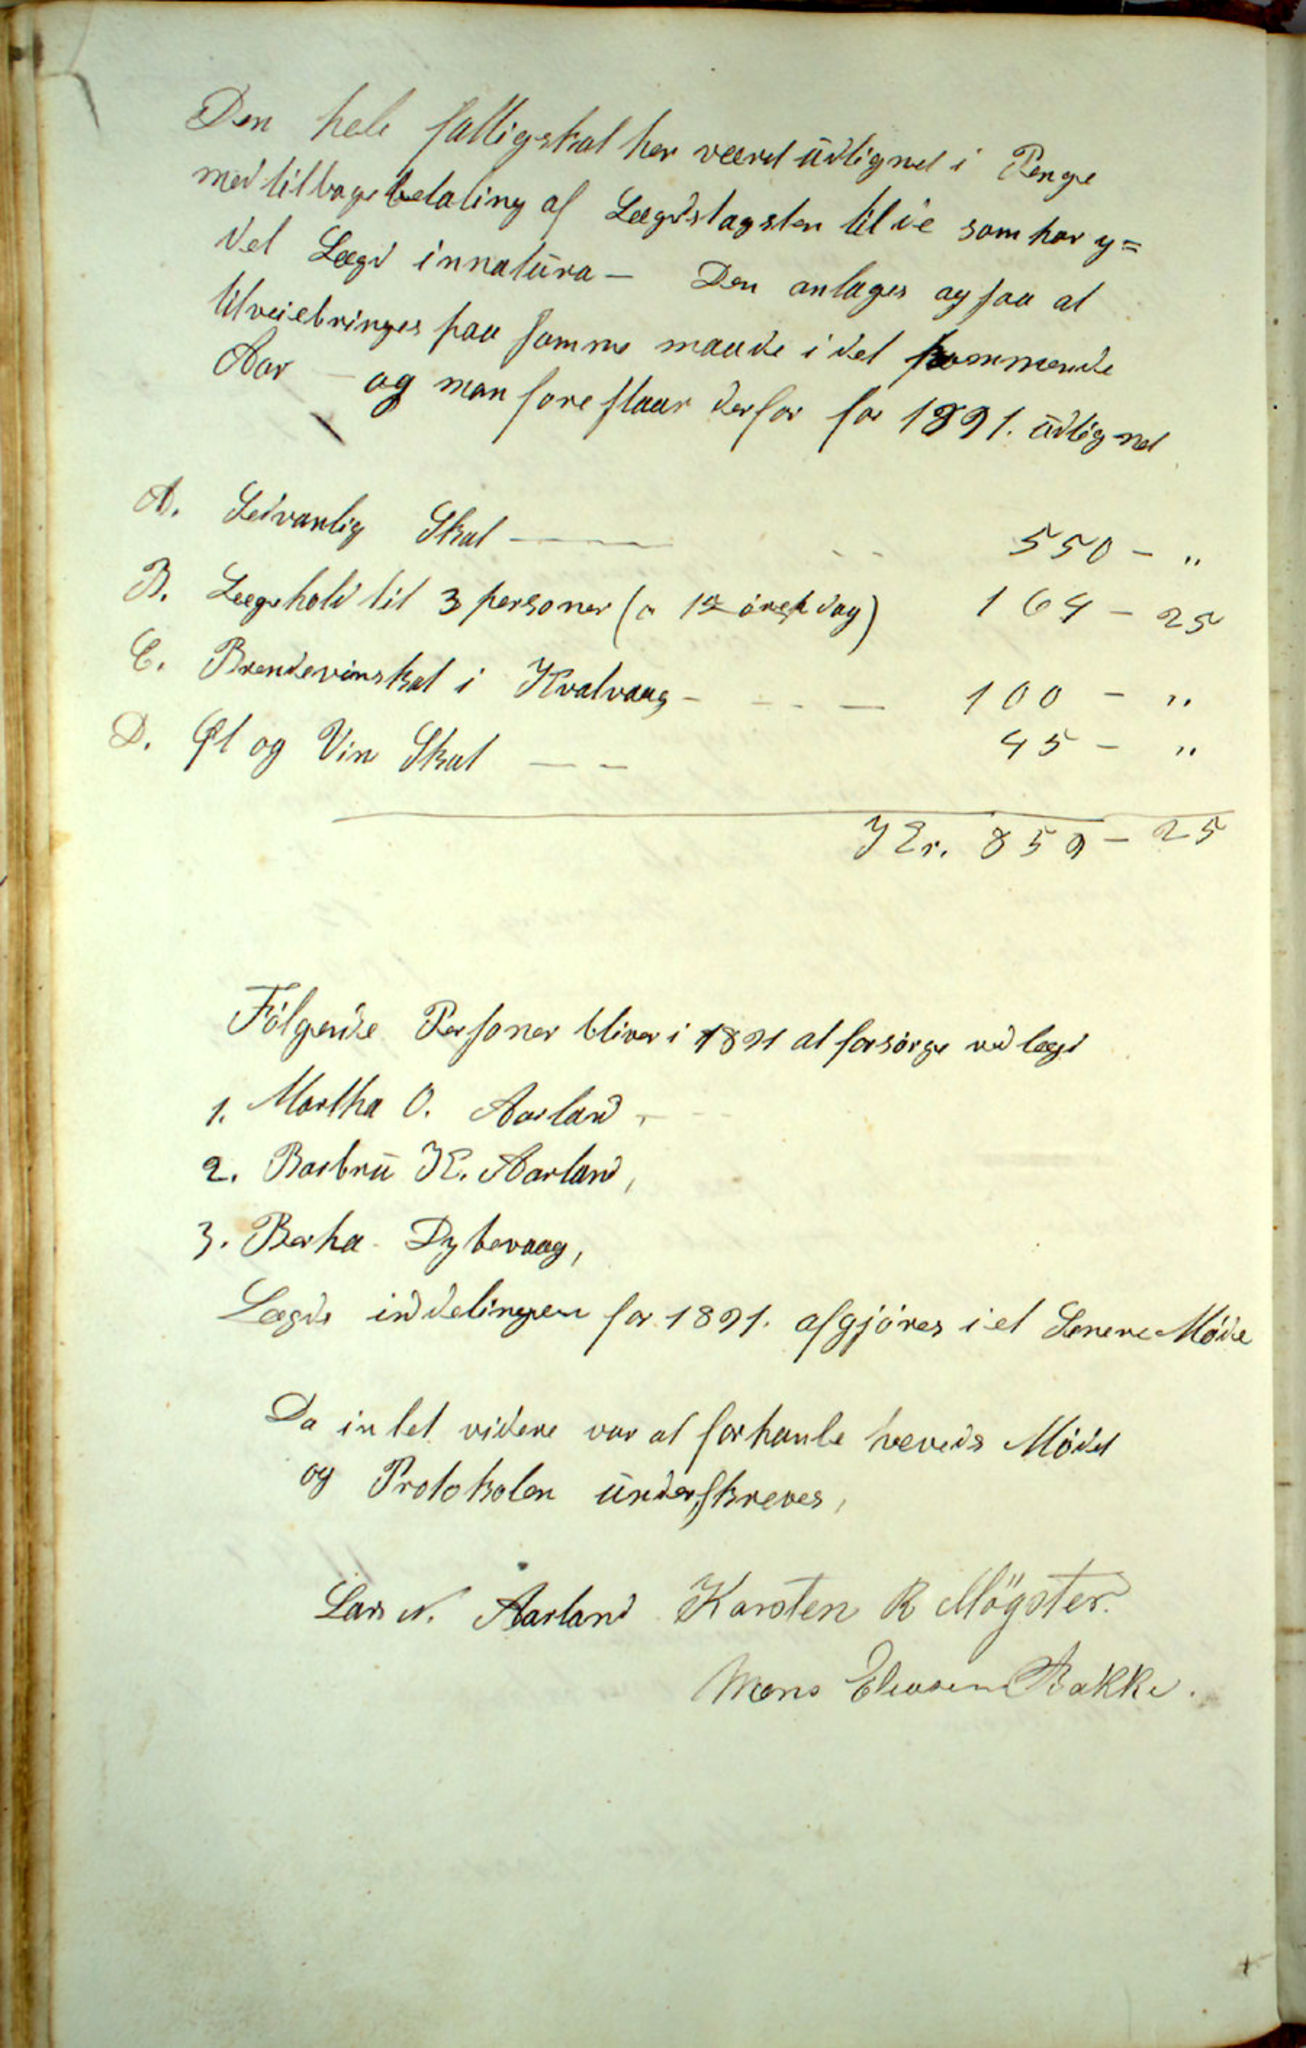 Den hele fattigskat har værd ūdlignet i Penge
med tilbagebetaling af Lægdstagsten til de som har y=
det Lægd innatūra — Den antages ogsaa at
tilveiebringes paa samme maade i det kommende
Aar — og man foreslaar derfor for 1891. ūdlignet
A. Sedvanlig Skat — 550 - "
B. Lægdhold til 3 personer (a 15 øre pr dag) 164 - 25
C. Brendevinskat i Kvalvaag - — 100 - "
D. Øl og Vin Skat — 45 - "
Kr. 859 - 25
Følgende Personer bliver i 1891 at forsørge ved lægd
1. Martha O. Aarland,
2. Barbrū K. Aarland,
3. Bertha Dybevaag,
Lægds inddelingen for 1891. afgjøres i et Senere Møde
Da intet videre var at forhanle hæveds Mødet
og Protokolen ūnderskreves,
Lars N. Aarland Karsten R Mögster.
Mons Eliasen Bakke.